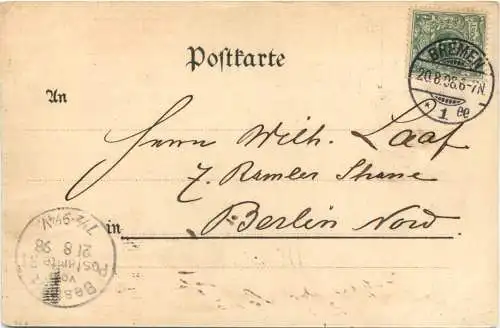 Postkarte
BREMEN
20.8.98.6-7N.
* 1 ee
An
Herrn Wilh. Laaf
7. Ramler Strasse
in Berlin Nord.
Best
vom
Postamte
21 8 98
7½-9¼N.